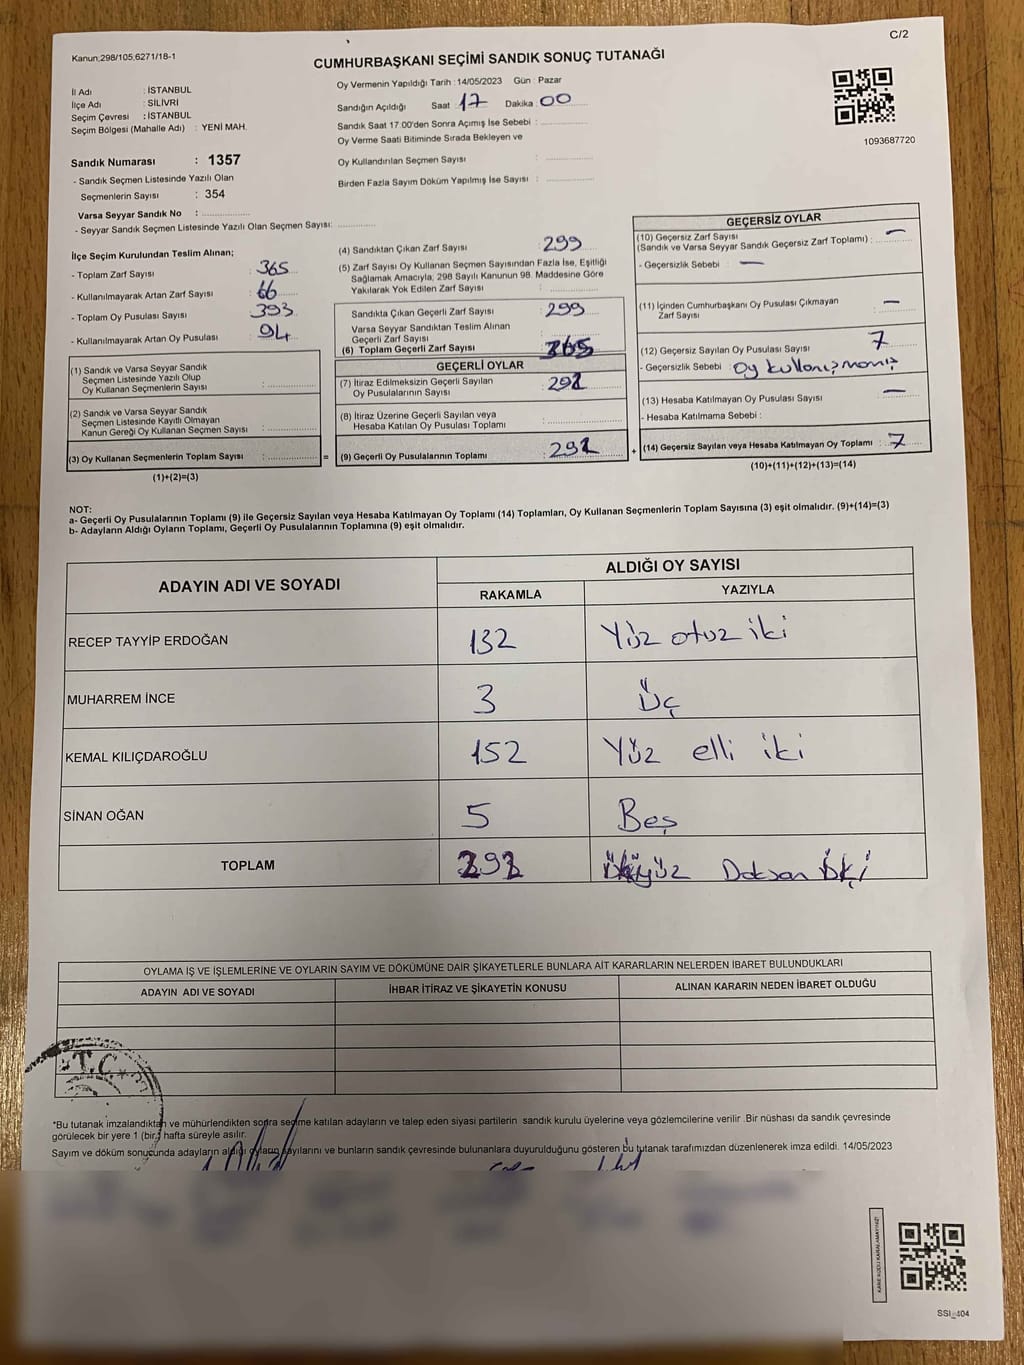 C/2
Kanun;298/105,6271/18-1
CUMHURBAŞKANI SEÇİMİ SANDIK SONUÇ TUTANAĞI
İl Adı : İSTANBUL
İlçe Adı : SİLİVRİ
Seçim Çevresi : İSTANBUL
Seçim Bölgesi (Mahalle Adı) : YENİ MAH.
Sandık Numarası : 1357
- Sandık Seçmen Listesinde Yazılı Olan
Seçmenlerin Sayısı : 354
Varsa Seyyar Sandık No : ..................
- Seyyar Sandık Seçmen Listesinde Yazılı Olan Seçmen Sayısı: ..............
Oy Vermenin Yapıldığı Tarih : 14/05/2023 Gün : Pazar
Sandığın Açıldığı Saat : 17 Dakika : 00
Sandık Saat 17:00'den Sonra Açımış İse Sebebi : ..................
Oy Verme Saati Bitiminde Sırada Bekleyen ve
Oy Kullandırılan Seçmen Sayısı : ..................
Birden Fazla Sayım Döküm Yapılmış İse Sayısı : ..................
1093687720
İlçe Seçim Kurulundan Teslim Alınan;
- Toplam Zarf Sayısı : 365
- Kullanılmayarak Artan Zarf Sayısı : 66
- Toplam Oy Pusulası Sayısı : 393
- Kullanılmayarak Artan Oy Pusulası : 94
(1) Sandık ve Varsa Seyyar Sandık
Seçmen Listesinde Yazılı Olup
Oy Kullanan Seçmenlerin Sayısı : ..............
(2) Sandık ve Varsa Seyyar Sandık
Seçmen Listesinde Kayıtlı Olmayan
Kanun Gereği Oy Kullanan Seçmen Sayısı : ..............
(3) Oy Kullanan Seçmenlerin Toplam Sayısı : .............. =
(1)+(2)=(3)
(4) Sandıktan Çıkan Zarf Sayısı : 299
(5) Zarf Sayısı Oy Kullanan Seçmen Sayısından Fazla İse, Eşitliği
Sağlamak Amacıyla; 298 Sayılı Kanunun 98. Maddesine Göre
Yakılarak Yok Edilen Zarf Sayısı : ..............
Sandıkta Çıkan Geçerli Zarf Sayısı : 299
Varsa Seyyar Sandıktan Teslim Alınan
Geçerli Zarf Sayısı : ..............
(6) Toplam Geçerli Zarf Sayısı
GEÇERLİ OYLAR
(7) İtiraz Edilmeksizin Geçerli Sayılan
Oy Pusulalarının Sayısı : 292
(8) İtiraz Üzerine Geçerli Sayılan veya
Hesaba Katılan Oy Pusulası Toplamı : ..............
(9) Geçerli Oy Pusulalarının Toplamı : 292 +
GEÇERSİZ OYLAR
(10) Geçersiz Zarf Sayısı
(Sandık ve Varsa Seyyar Sandık Geçersiz Zarf Toplamı) : —
- Geçersizlik Sebebi : —
(11) İçinden Cumhurbaşkanı Oy Pusulası Çıkmayan
Zarf Sayısı —
(12) Geçersiz Sayılan Oy Pusulası Sayısı 7
- Geçersizlik Sebebi : oy kullanışmamış
(13) Hesaba Katılmayan Oy Pusulası Sayısı —
- Hesaba Katılmama Sebebi :
(14) Geçersiz Sayılan veya Hesaba Katılmayan Oy Toplamı : 7
(10)+(11)+(12)+(13)=(14)
NOT:
a- Geçerli Oy Pusulalarının Toplamı (9) ile Geçersiz Sayılan veya Hesaba Katılmayan Oy Toplamı (14) Toplamları, Oy Kullanan Seçmenlerin Toplam Sayısına (3) eşit olmalıdır. (9)+(14)=(3)
b- Adayların Aldığı Oyların Toplamı, Geçerli Oy Pusulalarının Toplamına (9) eşit olmalıdır.
ADAYIN ADI VE SOYADI ALDIĞI OY SAYISI
RAKAMLA YAZIYLA
RECEP TAYYİP ERDOĞAN 132 Yüz otuz iki
MUHARREM İNCE 3 Üç
KEMAL KILIÇDAROĞLU 152 Yüz elli iki
SİNAN OĞAN 5 Beş
TOPLAM 292 Doksan İki
OYLAMA İŞ VE İŞLEMLERİNE VE OYLARIN SAYIM VE DÖKÜMÜNE DAİR ŞİKAYETLERLE BUNLARA AİT KARARLARIN NELERDEN İBARET BULUNDUKLARI
ADAYIN ADI VE SOYADI İHBAR İTİRAZ VE ŞİKAYETİN KONUSU ALINAN KARARIN NEDEN İBARET OLDUĞU
T.C.
*Bu tutanak imzalandıktan ve mühürlendikten sonra seçime katılan adayların ve talep eden siyasi partilerin sandık kurulu üyelerine veya gözlemcilerine verilir .Bir nüshası da sandık çevresinde
görülecek bir yere 1 (bir) hafta süreyle asılır.
Sayım ve döküm sonucunda adayların aldığı oyların sayılarını ve bunların sandık çevresinde bulunanlara duyurulduğunu gösteren bu tutanak tarafımızdan düzenlenerek imza edildi. 14/05/2023
KARE KODU KARALAMAYINIZ!
SSI_404